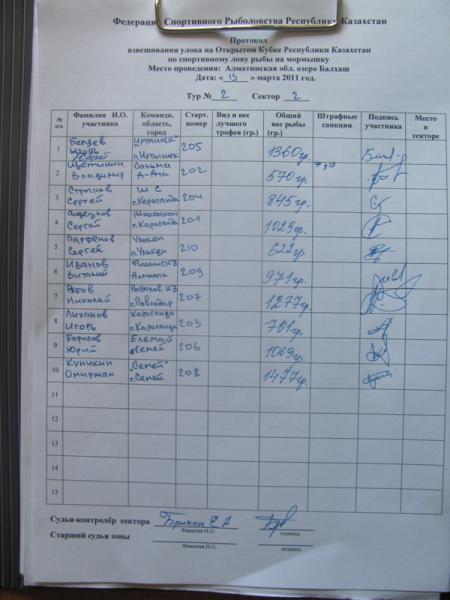 Федерация Спортивного Рыболовства Республики Казахстан
Протокол
взвешивания улова на Открытом Кубке Республики Казахстан
по спортивному лову рыбы на мормышку
Место проведения: Алматинская обл. озеро Балхаш
Дата: « 13 » марта 2011 год.
Тур № 2 Сектор 2
№ п/п Фамилия И.О. участника Команда, область, город Старт. номер Вид и вес лучшего трофея (гр.) Общий вес рыбы (гр.) Штрафные санкции Подпись участника Место в секторе
1 205 1360гр.
2 Щетинин Владимир А-Ата 202 570гр.
3 Сергей г.Караганда 204 845гр.
4 Сергей г.Караганда 201 1029гр.
5 Парфёнов Сергей Улькен г.Улькен 210 622гр.
6 Иванов Виталий Алматы 209 971гр.
7 Николай г.Павлодар 207 1277гр.
8 Лиханов Игорь Караганда г.Караганда 203 701гр.
9 Борисов Юрий Семей 206 1069гр.
10 Куникин "Семей" г.Семей 208 1477гр.
11
12
13
14
15
Судья-контролёр сектора
Фамилия И.О. подпись
Старший судья зоны
Фамилия И.О. подпись